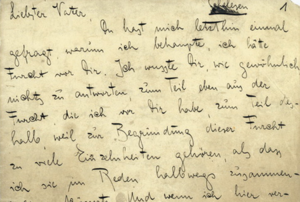 1
Liebster Vater,
Du hast mich letzthin einmal
gefragt warum ich behaupte, ich hätte
Furcht vor Dir. Ich wusste Dir, wie gewöhnlich,
nichts zu antworten, zum Teil eben aus der
Furcht die ich vor Dir habe, zum Teil des-
halb weil zur Begründung dieser Furcht
zu viele Einzelheiten gehören, als dass
ich sie im Reden halbwegs zusammen-
Und wenn ich hier ver-